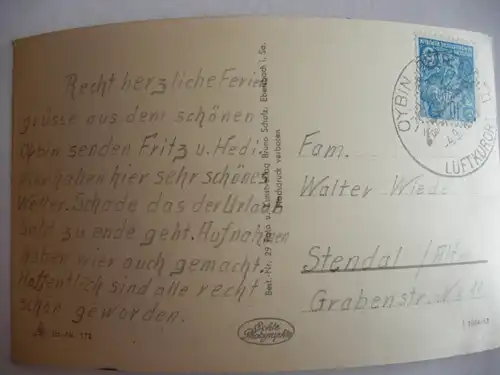 Recht herzliche Ferien
grüsse aus dem schönen
Oybin senden Fritz u. Hedi.
Wier haben hier sehr schönes
Wetter. Schade das der Urlaub
bald zu ende geht. Aufnahmen
haben wier auch gemacht.
Hoffentlich sind alle recht
schön geworden.
Best.-Nr. 29 Foto u. Kunstverlag Bruno Scholz, Ebersbach i. Sa.
Nachdruck verboten
Echte Photographie
OYBIN
LUFTKURORT
Fam.
Walter Wiede
Stendal
Grabenstr. No 11